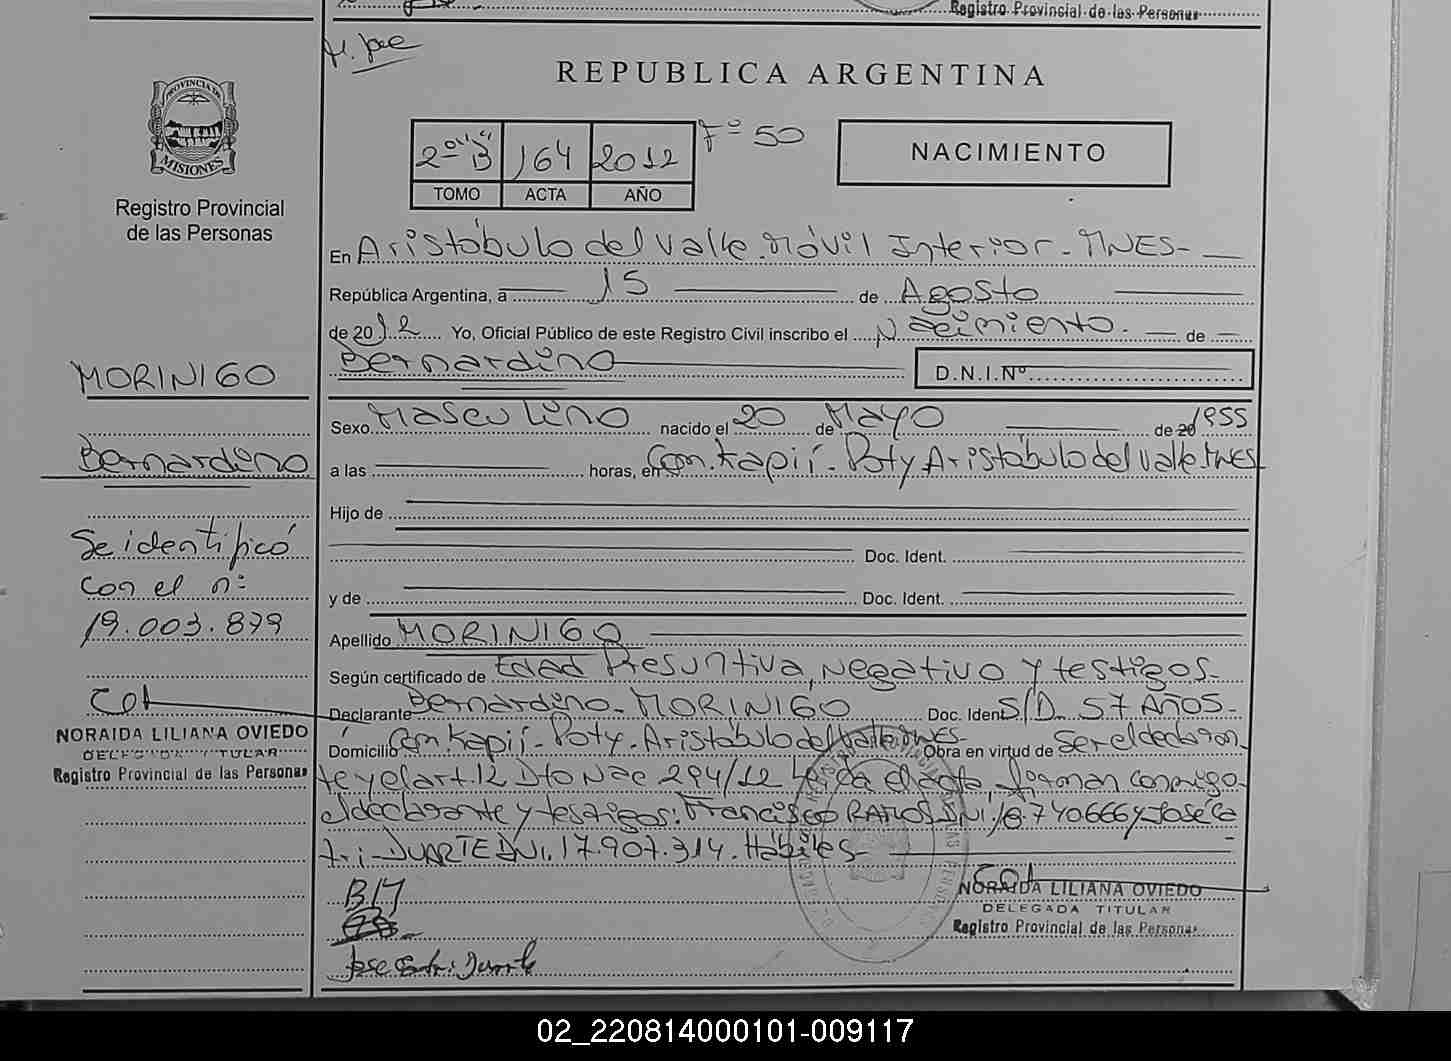 Registro Provincial de las Personas
REPUBLICA ARGENTINA
PROVINCIA DE
MISIONES
Registro Provincial
de las Personas
2º "B" 164 2012 Fº 50
TOMO ACTA AÑO
NACIMIENTO
En Aristóbulo del Valle. Móvil Interior - MNES -
República Argentina, a 15 de Agosto
de 2012 Yo, Oficial Público de este Registro Civil inscribo el Nacimiento. de
Bernardino
D.N.I.Nº
MORINIGO
Bernardino
Se identificó
con el nº
19.003.879
NORAIDA LILIANA OVIEDO
DELEGADA TITULAR
Registro Provincial de las Personas
Sexo Masculino nacido el 20 de Mayo de 20 1955
a las horas, en Com. Kapií - Poty Aristóbulo del Valle. MNES
Hijo de
Doc. Ident.
y de Doc. Ident.
Apellido MORINIGO
Según certificado de Edad Presuntiva, Negativo y testigos.
Declarante Bernardino - MORINIGO Doc. Ident S/D - 57 AÑOS -
Domicilio Com. Kapií - Poty. Aristóbulo del Valle MNES Obra en virtud de Ser el declaran
te y el art. 12 Dto Nac 294/12 Leída el acta, firman conmigo
el declarante y testigos. Francisco RAMOS DNI. 18.740666 y José Ca
tri DUARTE DNI. 17.907.314. Hábiles -
B M
NORAIDA LILIANA OVIEDO
DELEGADA TITULAR
Registro Provincial de las Personas
Jose Duarte
02_220814000101-009117